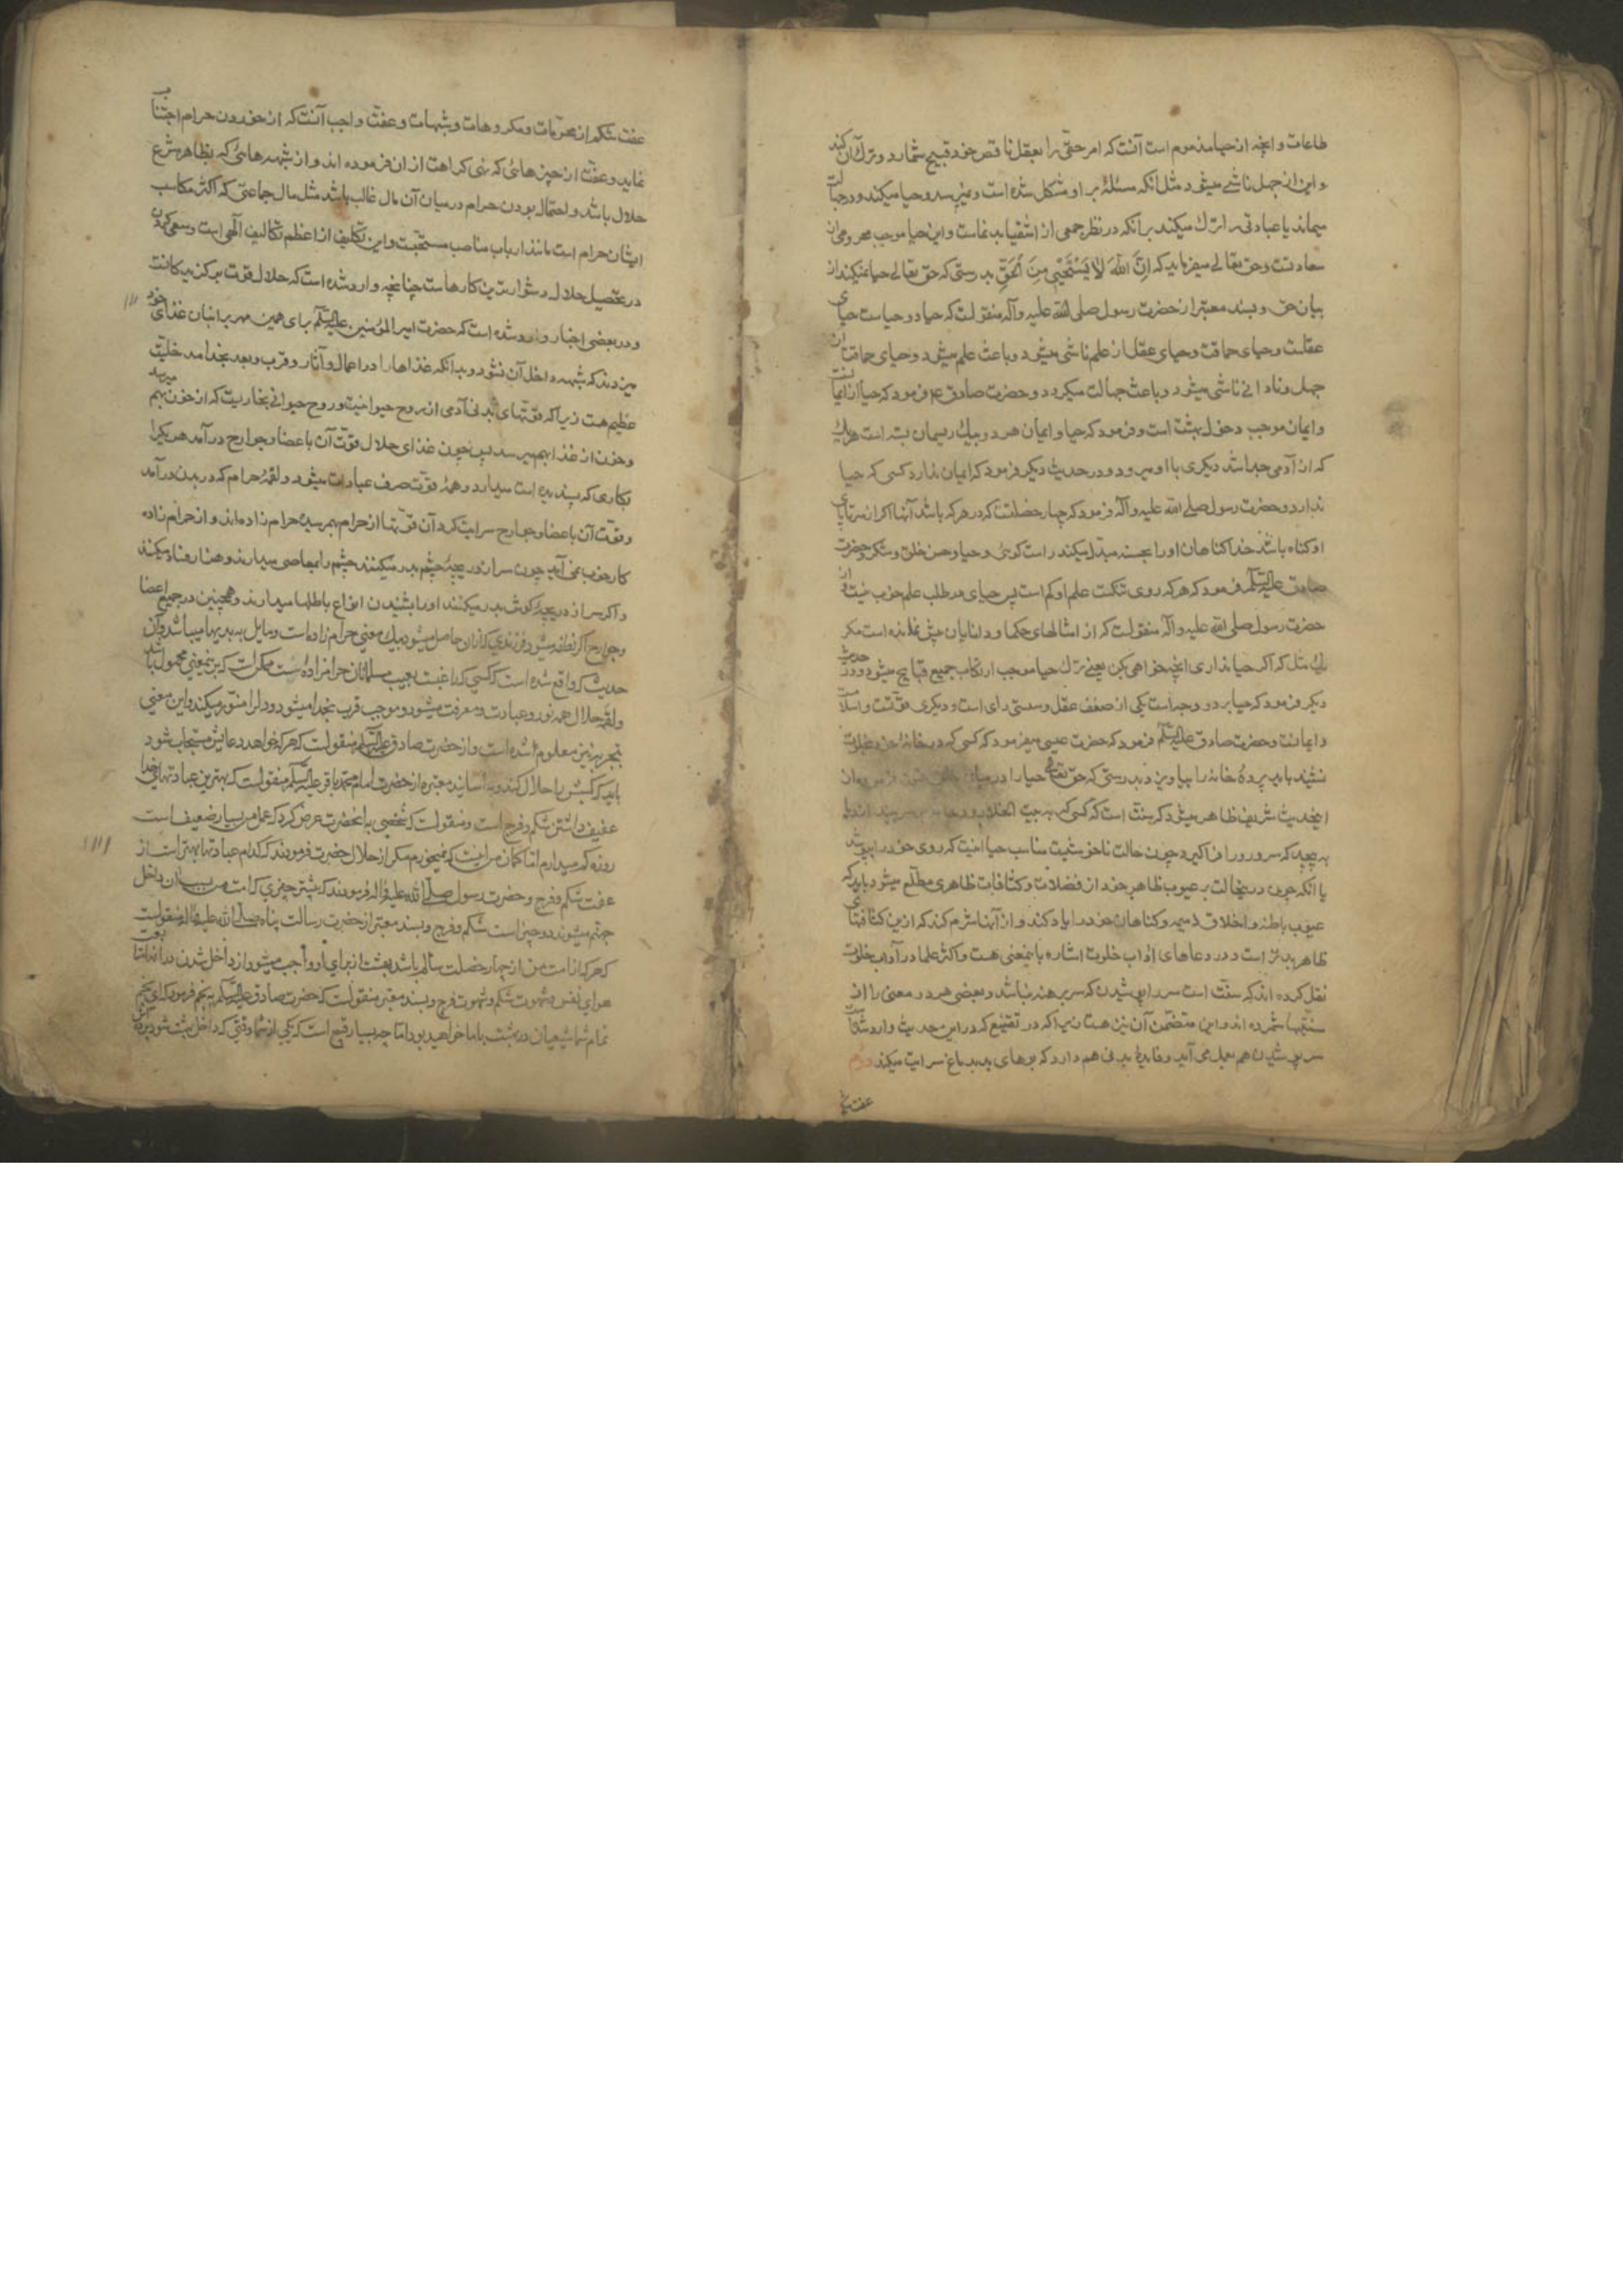 طاعات و آنچه از حیا مذموم است آنست که امر حقی را بعقل ناقص خود قبیح شمارد و ترک آن کند
و این از جهل ناشی میشود مثل آنکه مسئلهٔ بر او مشکل شده است و نمیپرسد و حیا میکند و در جهالت
میماند یا عبادتی را ترک میکند برآنکه در نظر جمعی از اشقیا بد نماست و این حیا موجب محرومی از
سعادتست و حق تعالی میفرماید که اِنَّ اللّٰهَ لاٰ یَسْتَحْیٖی مِنَ الْحَقِّ بدرستی که حق تعالی حیا نمیکند از
بیان حق و بسند معتبر از حضرت رسول صلی الله علیه وآله منقولست که حیا دو حیاست حیای
عقلست و حیای حماقت و حیای عقل از علم ناشی میشود و باعث علم میشود و حیای حماقت از
جهل و نادانی ناشی میشود و باعث جهالت میگردد و حضرت صادق ع فرمود که حیا از ایمانست
و ایمان موجب دخول بهشت است و فرمود که حیا و ایمان هر دو بیک ریسمان بسته است هر یک
که از آدمی جدا شد دیگری با او میرود و در حدیث دیگر فرمود که ایمان ندارد کسی که حیا
ندارد و حضرت رسول صلی الله علیه وآله فرمود که چهار خصلتست که در هر که باشد آنها اگر از سر تا پای
او گناه باشد خدا گناهان او را بحسنه مبدل میکند راست گوئی و حیا و حسن خلق و شکر و حضرت
صادق علیه السلم فرمود که هر که روی تنکست علم او کم است پس حیای در طلب علم خوب نیست و از
حضرت رسول صلی الله علیه وآله منقولست که از امثالهای حکما و دانایان پیش نمانده است مگر
یک مثل که اگر حیا نداری آنچه خواهی بکن یعنی ترک حیا موجب ارتکاب جمیع قبایح میشود و در حدیث
دیگر فرمود که حیا بر دو وجه است یکی از ضعف عقل و سستی رای است و دیگری قوتست و اسلامست
و ایمانست و حضرت صادق علیه السلم فرمود که حضرت عیسی میفرمود که کسی که در خانهٔ خود بخلوت
نشیند باید پردهٔ خانه را بیاویزد بدرستی که حق تعالی حیا را در میان خلق
از حدیث شریف ظاهر میشود که سنت است که کسی که به بیت الخلا رود
بپیچد که سر و رو را فرا گیرد چون حالت ناخوشیست مناسب حیا اینست که روی خود را بپوشد
یا آنکه چون در این حالت بر عیوب ظاهر خود از فضلات و کثافات ظاهری مطلع میشود باید که
عیوب باطنه و اخلاق ذمیمه و گناهان خود را یاد کند و از آنها شرم کند که ازین کثافتهای
ظاهر بدتر است و در دعاهای آداب خلوت اشاره باینمعنی هست و اکثر علما در آداب خلوت
نقل کرده اند که سنت است سر را پوشیدن که سر برهنه نباشد و بعضی هر دو معنی را از
سنتها شمرده اند و این متضمن آن نیز هست زیرا که در تقنیع که در این حدیث وارد شده است
سر پوشیدن هم بعمل می آید و فایدهٔ بدنی هم دارد که بوهای بد بدماغ سرایت میکند دوم
عفت
عفت شکم از محرمات و مکروهات و شبهات و عفت واجب آنست که از خوردن حرام اجتناب
نماید و عفت از چیزهائی که نهی کراهت از آن فرموده اند و از شبهه هائی که بظاهر شرع
حلال باشد و احتمال بودن حرام در میان آن مال غالب باشد مثل مال جماعتی که اکثر مکاسب
ایشان حرام است مانند ارباب مناصب مستحبست و این تکلیف از اعظم تکالیف الهی است و سعی کردن
در تحصیل حلال دشوارترین کارهاست چنانچه وارد شده است که حلال قوت برگزیدگانست
و در بعضی اخبار وارد شده است که حضرت امیر المؤمنین علیه السلم برای همین مهر بر انبان غذای خود
میزدند که شبهه داخل آن نشود و بدانکه غذاها را در اعمال و آثار و قرب و بعد بخدا مدخلیت
عظیم هست زیرا که قوتهای بدنی آدمی از روح حیوانیست و روح حیوانی بخاریست که از خون بهم میرسد
و خون از غذا بهم میرسد پس چون غذای حلال قوت آن باعضا و جوارح در آمد هر یک را
بکاری که پسندیده است میدارد و همه قوت صرف عبادات میشود و لقمهٔ حرام که در بدن در آمد
و قوت آن باعضا و جوارح سرایت کرد آن قوتها از حرام بهم رسیده حرام زاده اند و از حرام زاده
کار خوب نمی آید چون سر از دریچهٔ چشم بدر میکنند چشم را بمعاصی میدارند و هزار فساد میکند
و اگر سر از دریچهٔ گوش بدر میکنند او را بشنیدن انواع باطلها میدارند و همچنین در جمیع اعضا
و جوارح اگر نطفه میشود فرزندی که از او حاصل میشود بیک معنی حرام زاده است و مایل به بدیها میباشد و آن
حدیث که واقع شده است که کسی که غیبت و عیب مسلمانان حرامزاده است ممکن است که بر اینمعنی محمول باشد
و لقمه حلال همه نور و عبادت و معرفت میشود و موجب قرب بخدا میشود و دل را منور میکند و این معنی
بتجربه نیز معلوم شده است و از حضرت صادق علیه السلم منقولست که هر که خواهد دعایش مستجاب شود
باید که کسبش را حلال کند و باسانید معتبره از حضرت امام محمد باقر علیه السلم منقولست که بهترین عبادتهای خدا
عفیف داشتن شکم و فرج است و منقولست که شخصی بآنحضرت عرض کرد که عمل من بسیار ضعیف است
روزه کم میدارم اما گمان من اینست که نمیخورم مگر از حلال حضرت فرمودند که کدام عبادتها بهتر است از
عفت شکم و فرج و حضرت رسول صلی الله علیه وآله فرمودند که بیشتر چیزی که امت من بسبب آن داخل
جهنم میشوند دو چیز است شکم و فرج و بسند معتبر از حضرت رسالت پناه صلی الله علیه وآله منقولست
که هر که از امت من از چهار خصلت سالم باشد بهشت از برای او واجب میشود از داخل شدن در دنیا و متابعت
هوای نفس و شهوت شکم و شهوت فرج و بسند معتبر منقولست که حضرت صادق علیه السلم بنجم فرمود که ای نجم
تمام شما شیعیان در بهشت با ما خواهید بود اما چه بسیار قبیح است که یکی از شما وقتی که داخل بهشت شود پرده‌اش